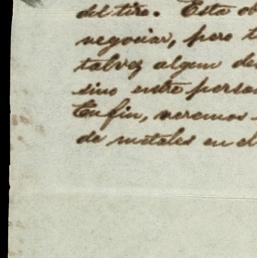 del tiro. Esta ob
negociar, pero t
talvez algun de
sino entre person
En fin, veremos
de metales en el